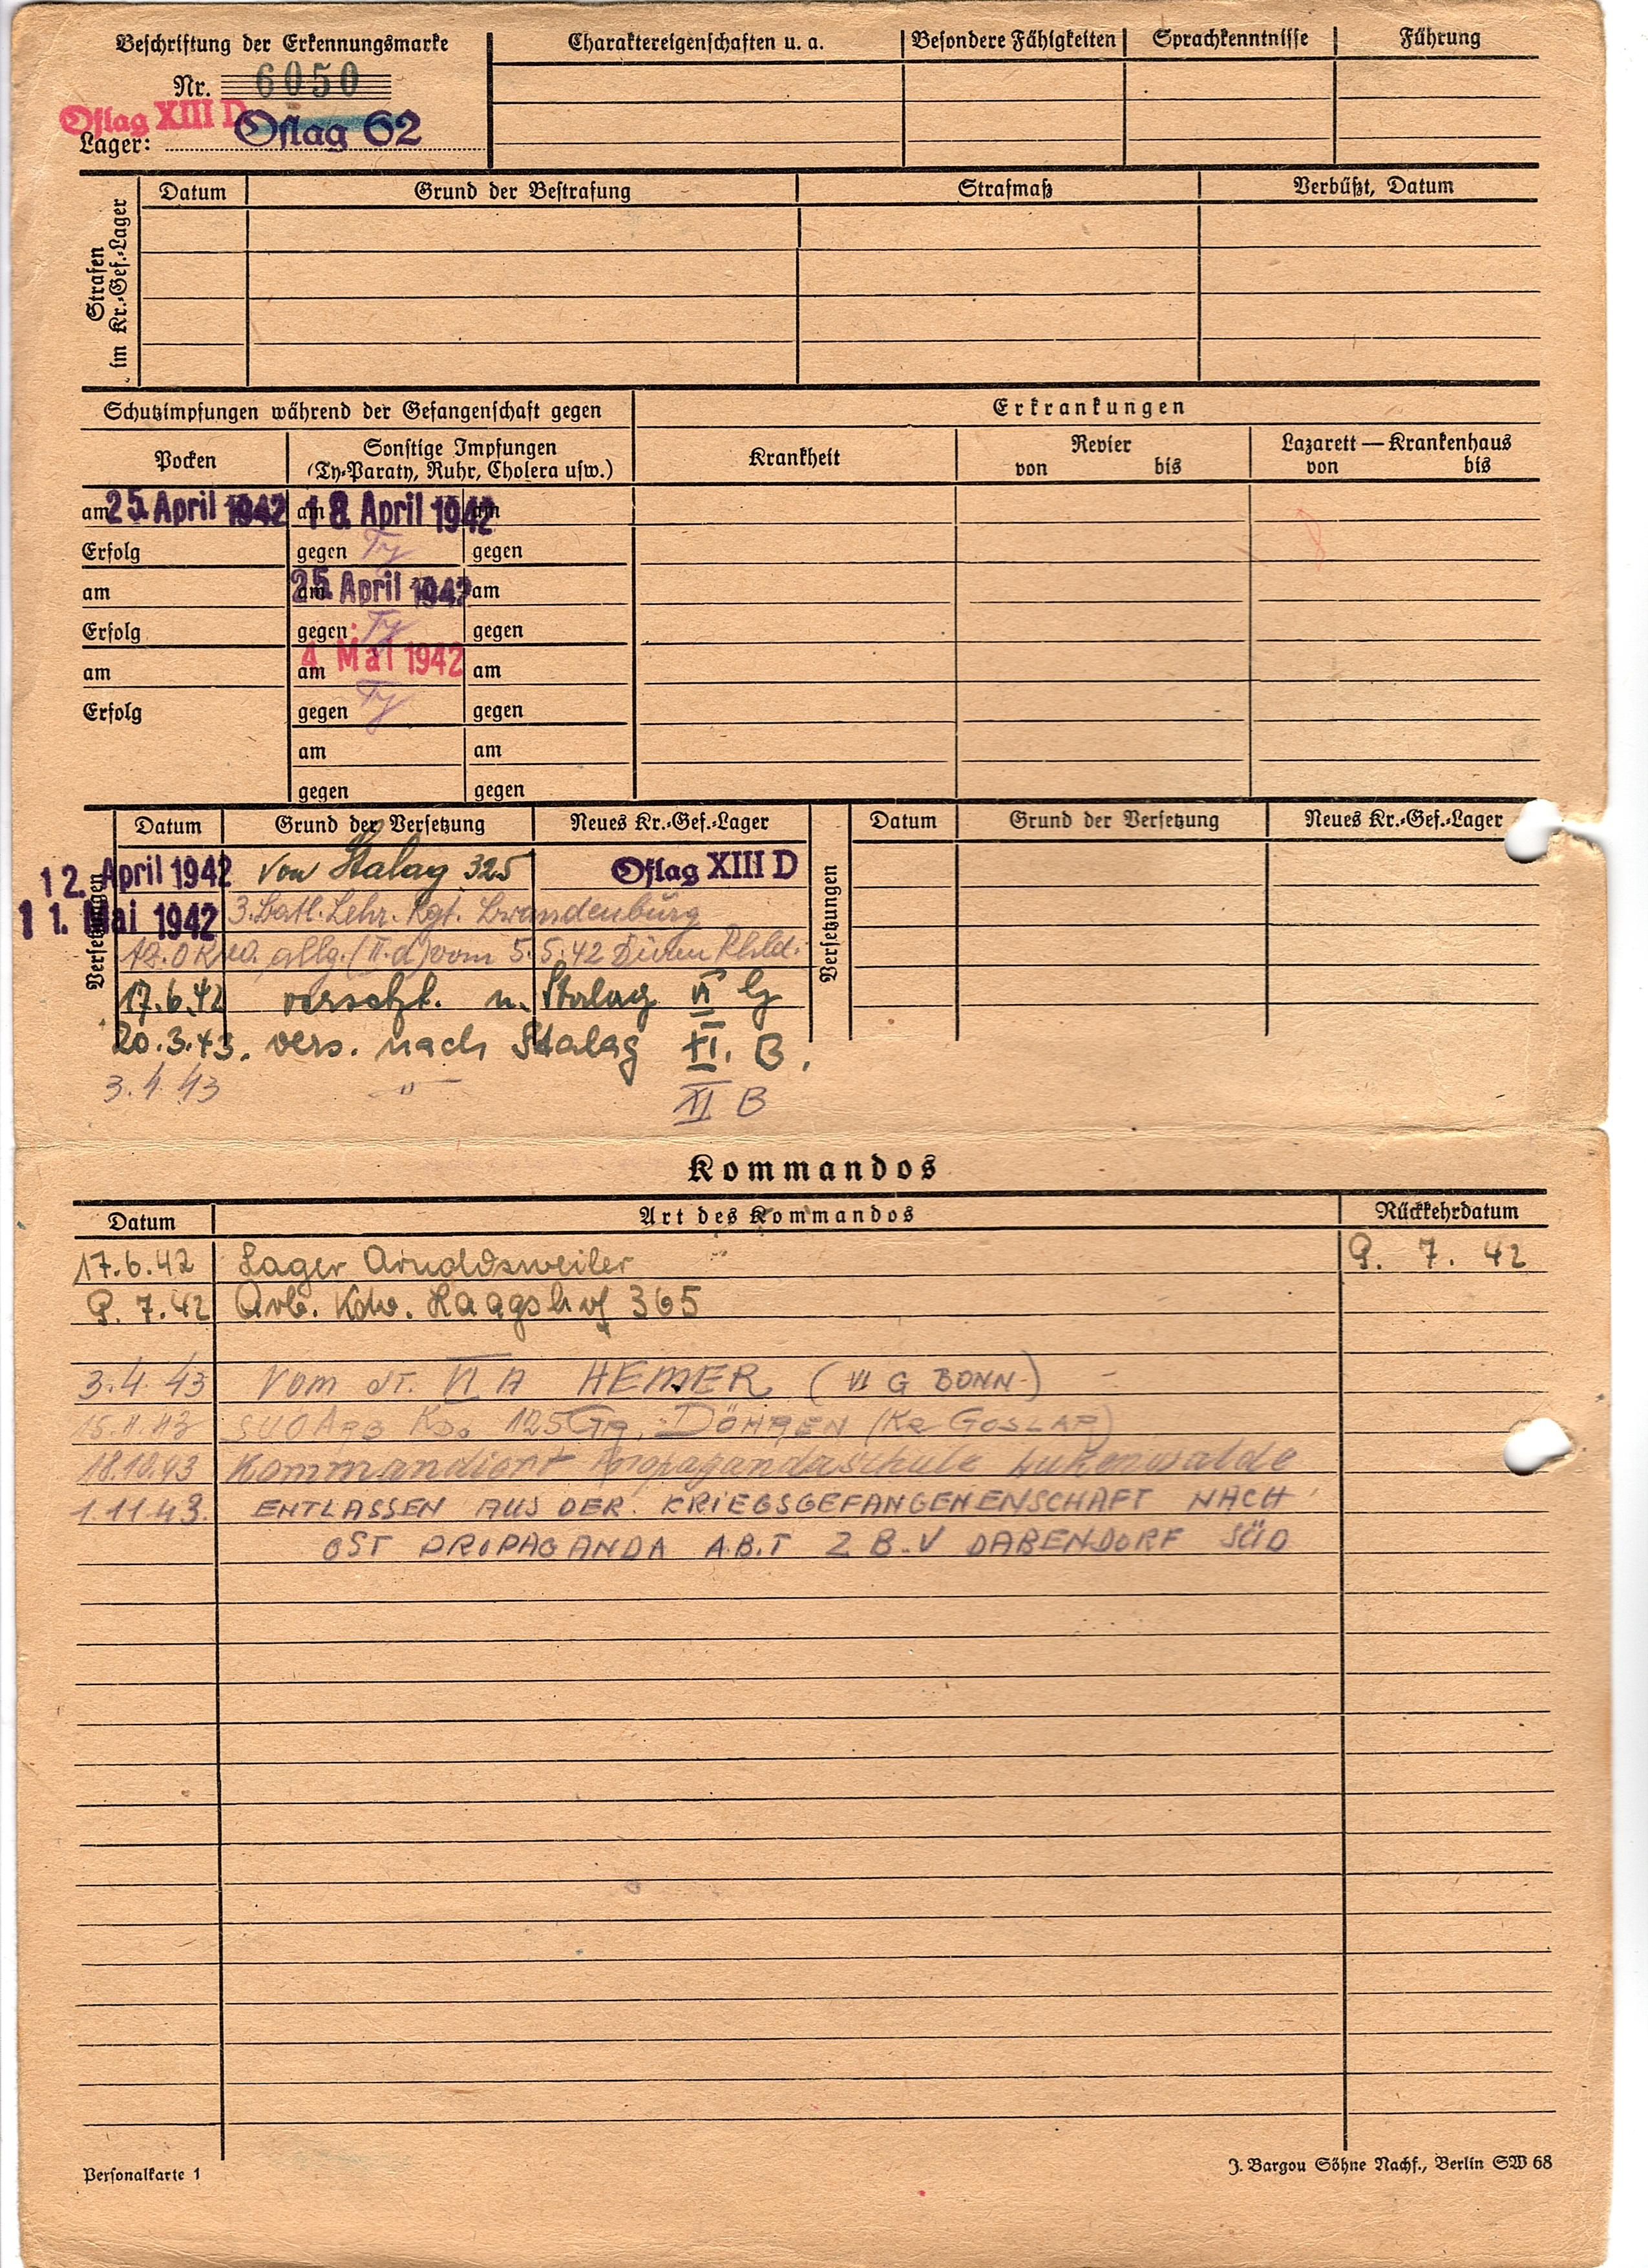 Beschriftung der Erkennungsmarke
Nr. 6050
Oflag XIII D
Lager: Oflag 62
Charaktereigenschaften u. a.
Besondere Fähigkeiten
Sprachkenntnisse
Führung
Strafen im Kr.-Gef.-Lager
Datum
Grund der Bestrafung
Strafmaß
Verbüßt, Datum
Schutzimpfungen während der Gefangenschaft gegen
Erkrankungen
Pocken
Sonstige Impfungen
(Ty-Paraty, Ruhr, Cholera usw.)
Krankheit
Revier
von bis
Lazarett — Krankenhaus
von bis
am 25. April 1942 am 18. April 1942 am
Erfolg gegen Ty gegen
am am 25. April 1942 am
Erfolg gegen Ty gegen
am am 4. Mai 1942 am
Erfolg gegen Ty gegen
am am
gegen gegen
Versetzungen
Datum Grund der Versetzung Neues Kr.-Gef.-Lager
12. April 1942 von Stalag 325 Oflag XIII D
11. Mai 1942 3. Batl. Lehr. Rgt. Brandenburg
Az. OKW. allg. (II.d) vom 5.5.42 Düren Rhld.
17.6.42 versetzt. n. Stalag VI G
20.3.43. vers. nach Stalag XI. B.
3.4.43 -"- XI B
Versetzungen
Datum Grund der Versetzung Neues Kr.-Gef.-Lager
Kommandos
Datum Art des Kommandos Rückkehrdatum
17.6.42 Lager Arnoldsweiler 9. 7. 42
9. 7. 42 Arb. Kdo. Haagshof 365
3.4.43 Vom ST. VI A HEMER (VI G BONN)
Kdo 125 DÖHREN (Kr GOSLAR)
18.10.43 Kommandiert Propagandaschule Lukenwalde
1.11.43. ENTLASSEN AUS DER KRIEGSGEFANGENENSCHAFT NACH
OST PROPAGANDA A.B.T Z B.V DABENDORF SÜD
Personalkarte 1
J. Bargou Söhne Nachf., Berlin SW 68